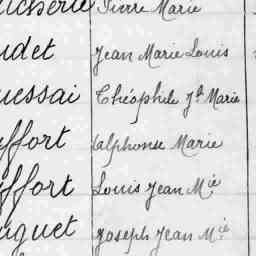 icherie Pierre Marie
udet Jean Marie Louis
uessai Théophile Jh Marie
uffort Alphonse Marie
uffort Louis Jean Mie
uguet Joseph Jean Mie